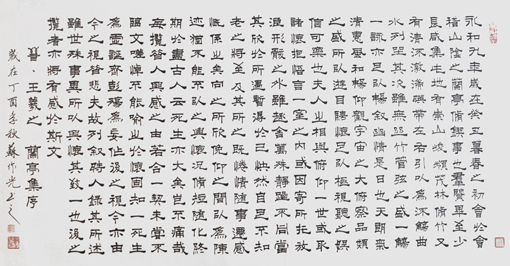 永和九年歲在癸丑暮春之初會於會
稽山陰之蘭亭脩禊事也羣賢畢至少
長咸集此地有崇山峻領茂林脩竹又
有清流激湍暎帶左右引以為流觴曲
水列坐其次雖無絲竹管弦之盛一觴
一詠亦足以暢敘幽情是日也天朗氣
清惠風和暢仰觀宇宙之大俯察品類
之盛所以遊目騁懷足以極視聽之娛
信可樂也夫人之相與俯仰一世或取
諸懷抱悟言一室之內或因寄所託放
浪形骸之外雖趣舍萬殊靜躁不同當
其欣於所遇暫得於己快然自足不知
老之將至及其所之既惓情隨事遷感
慨係之矣向之所欣俛仰之間以為陳
迹猶不能不以之興懷況脩短隨化終
期於盡古人云死生亦大矣豈不痛哉
每攬昔人興感之由若合一契未嘗不
臨文嗟悼不能喻之於懷固知一死生
為虛誕齊彭殤為妄作後之視今亦由
今之視昔悲夫故列敘時人錄其所述
雖世殊事異所以興懷其致一也後之
攬者亦將有感於斯文
晉·王羲之 蘭亭集序
歲在丁酉季秋蘇作光書之